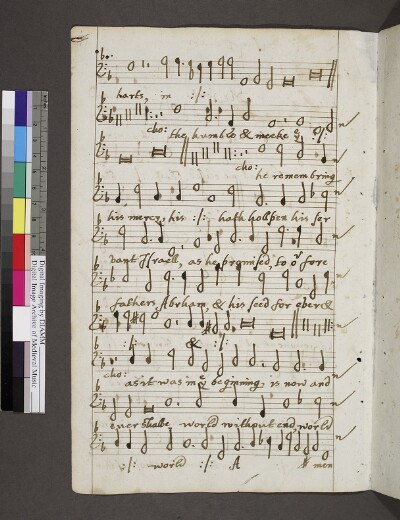 harts, in :/:
cho: the humble & meeke :/:
cho: he remembring
his mercy, his :/: hath holpen his ser
vant Israell, as he promised, to or fore
fathers, Abrham, & his seed for over &
:/: & :/:
cho: as it was in ye beginning, is now and
ever shalbe world without end, world
:/: world :/: A men
Digital Imaging by DIAMM
Digital Image Archive of Medieval Music